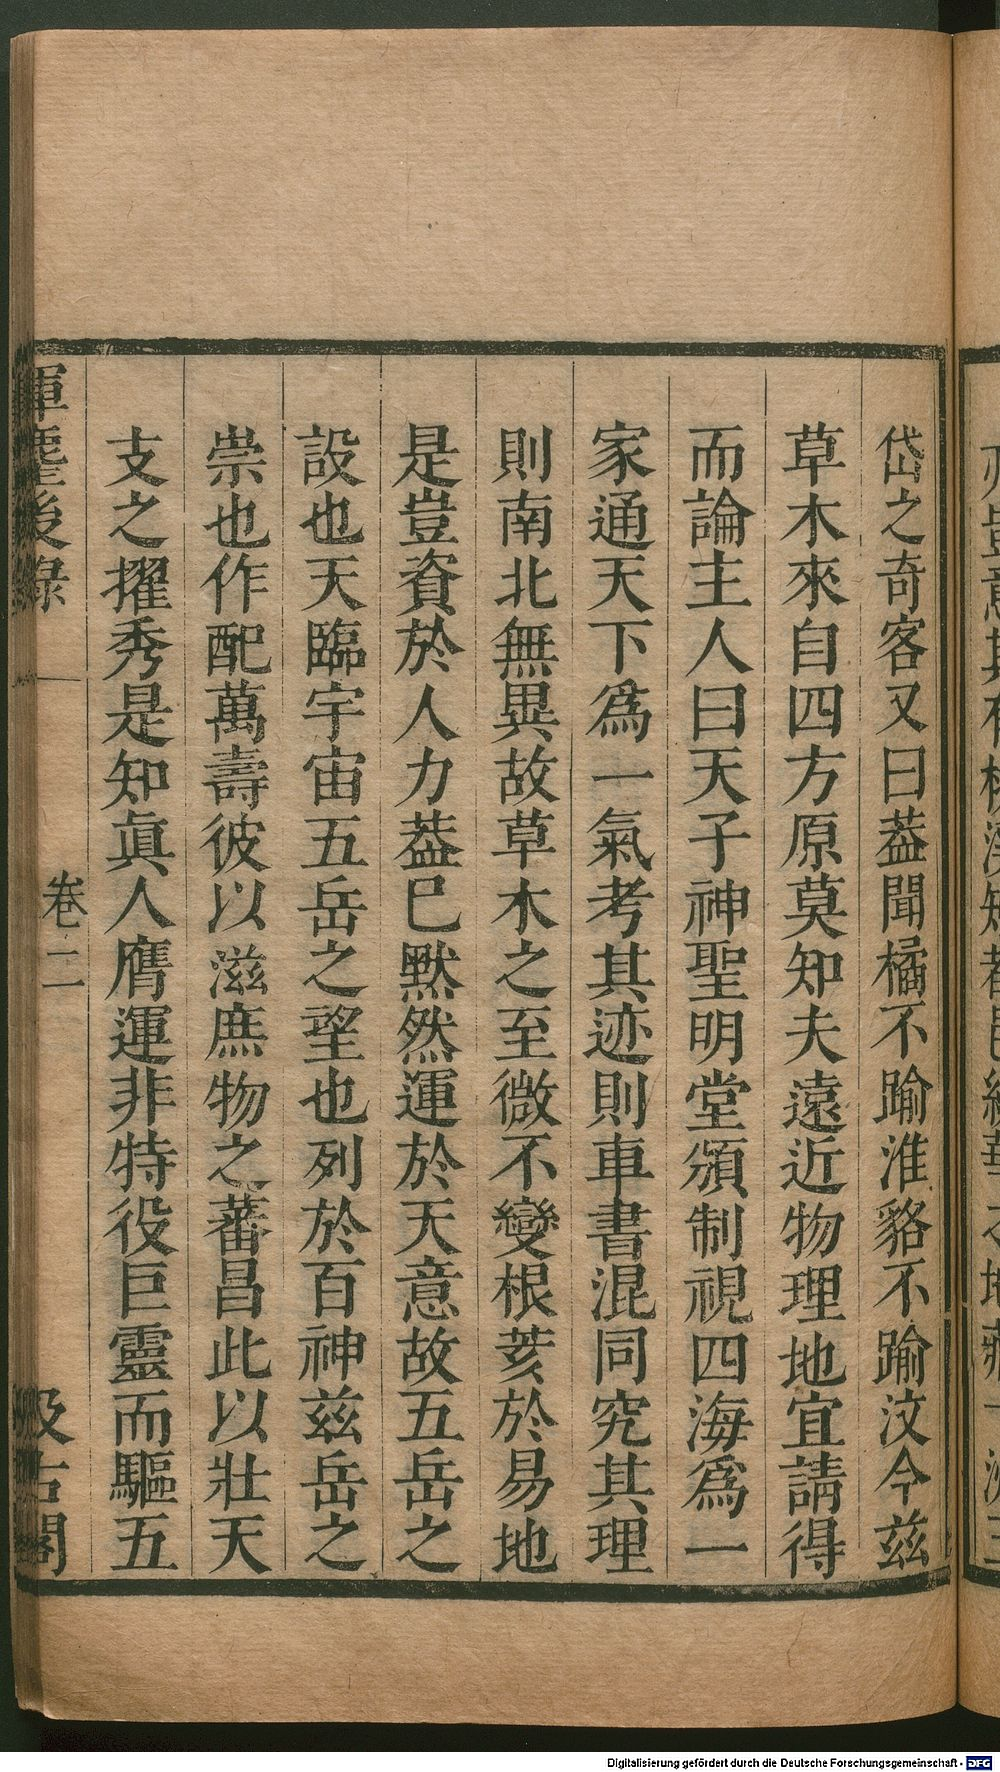 岱之奇客又曰葢聞橘不踰淮貉不踰汶今兹
草木來自四方原莫知夫遠近物理地宜請得
而論主人曰天子神聖明堂頒制視四海爲一
家通天下爲一氣考其迹則車書混同究其理
則南北無異故草木之至微不變根荄於易地
是豈資於人力葢巳默然運於天意故五岳之
設也天臨宇宙五岳之望也列於百神兹岳之
崇也作配萬壽彼以滋庶物之蕃昌此以壯天
支之擢秀是知眞人膺運非特役巨靈而驅五
揮麈後錄
卷二
汲古閣
Digitalisierung gefördert durch die Deutsche Forschungsgemeinschaft - DFG